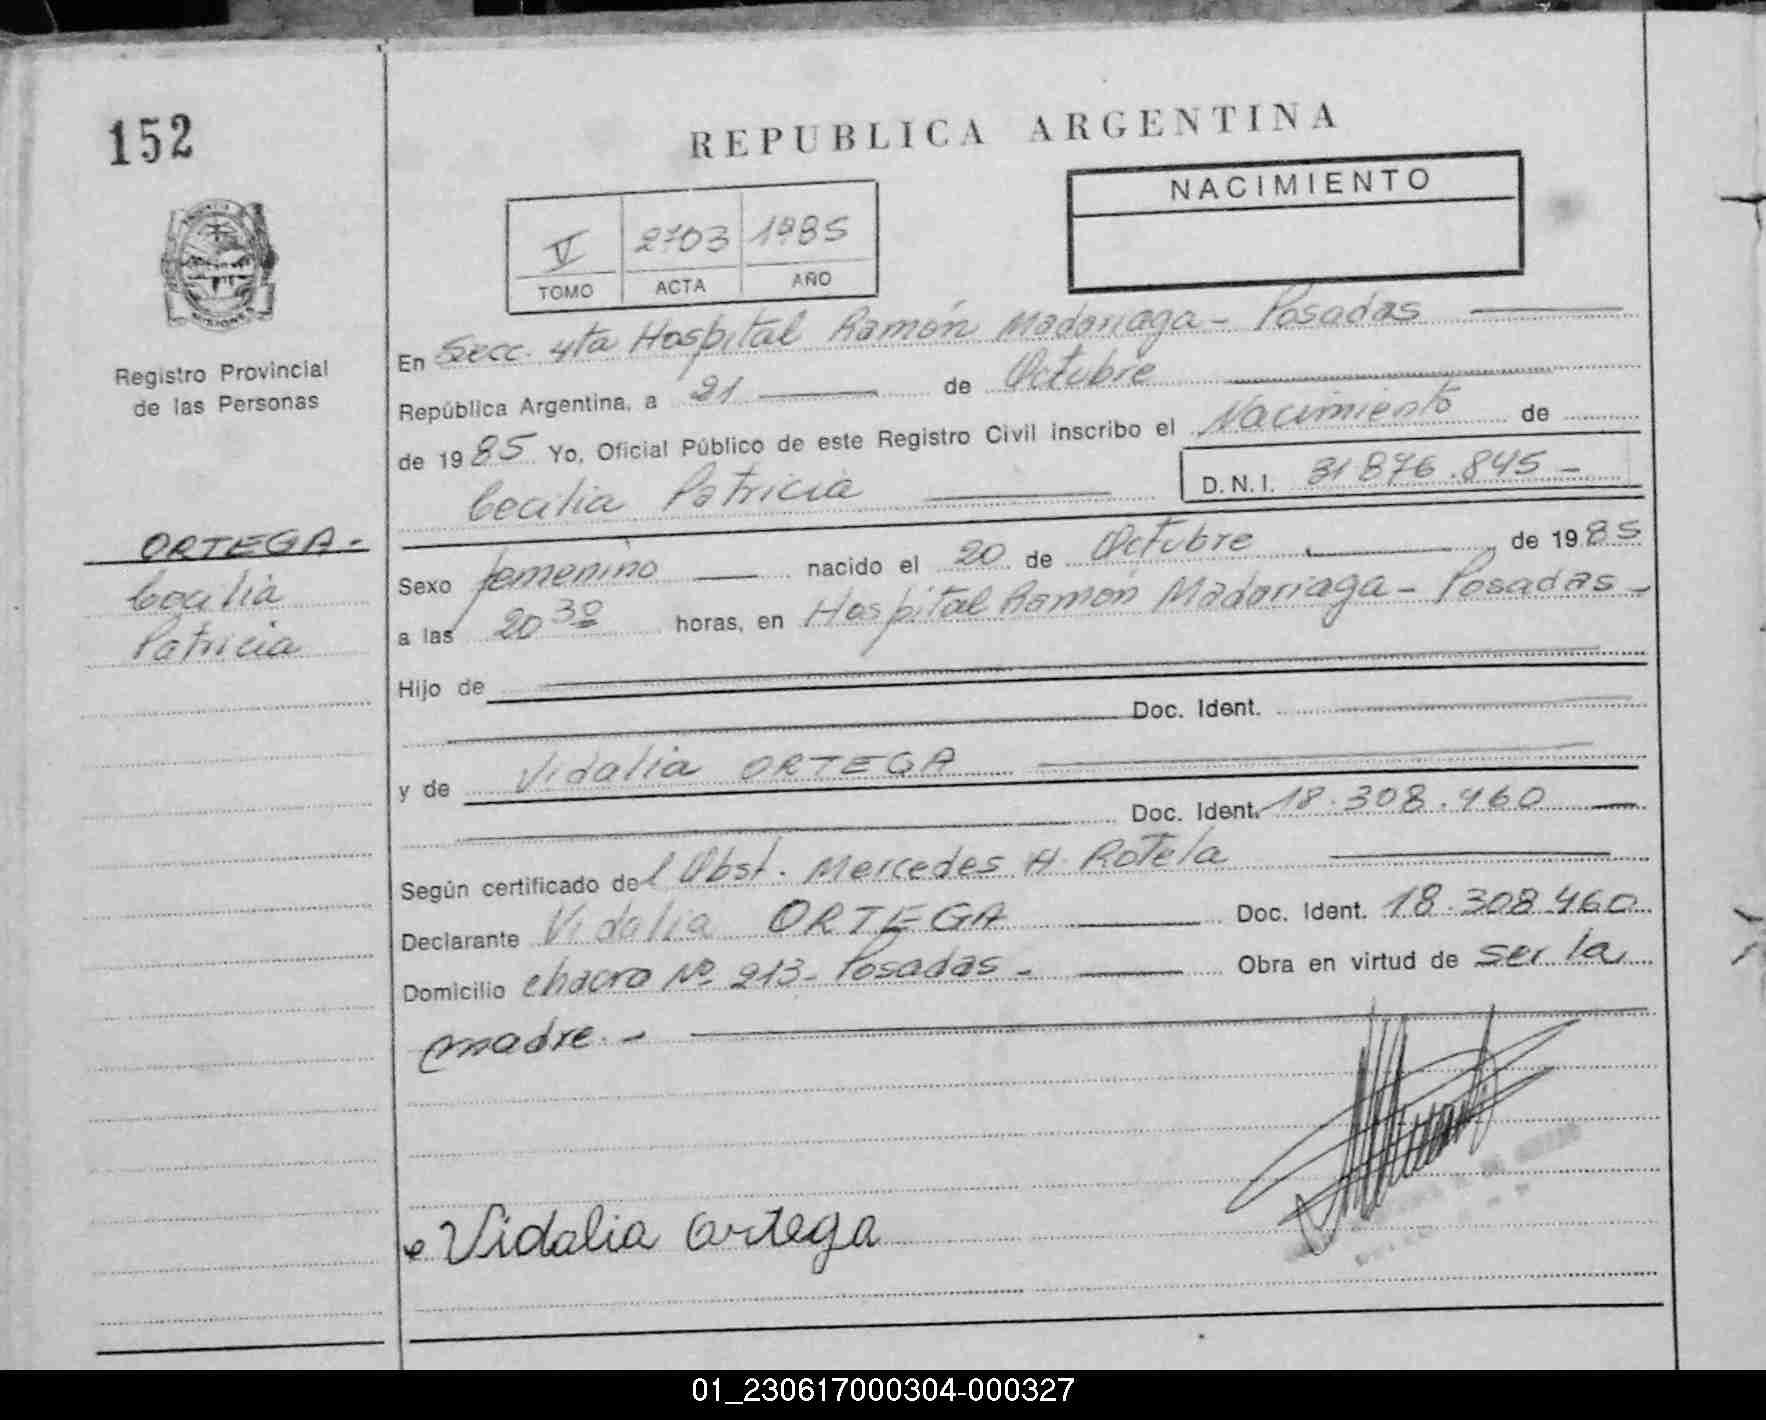 152
REPUBLICA ARGENTINA
NACIMIENTO
V 2703 1985
TOMO ACTA AÑO
MISIONES
Registro Provincial
de las Personas
En Secc. 4ta Hospital Ramón Madariaga - Posadas
República Argentina, a 21 de Octubre
de 1985 Yo, Oficial Público de este Registro Civil inscribo el Nacimiento de
Cecilia Patricia D.N.I. 31876.845-
ORTEGA-
Cecilia
Patricia
Sexo femenino nacido el 20 de Octubre de 1985
a las 20 30 horas, en Hospital Ramón Madariaga - Posadas -
Hijo de
Doc. Ident.
y de Vidalia ORTEGA
Doc. Ident. 18.308.460
Según certificado del Obst. Mercedes H. Rotela
Declarante Vidalia ORTEGA Doc. Ident. 18.308.460
Domicilio chacra Nº 213- Posadas - Obra en virtud de ser la
madre.-
Vidalia Ortega
01_230617000304-000327